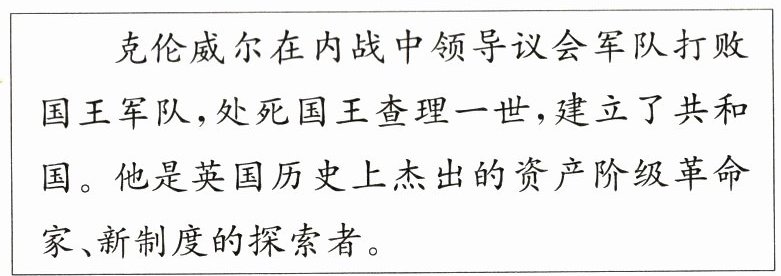 克伦威尔在内战中领导议会军队打败
国王军队,处死国王查理一世,建立了共和
国。他是英国历史上杰出的资产阶级革命
家、新制度的探索者。